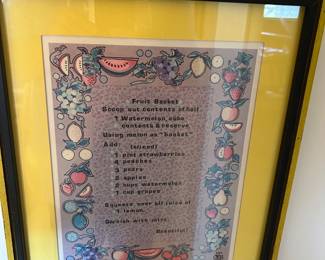 Fruit Basket
Scoop out contents of half
1 Watermelon, cube
contents & reserve
Using melon as "basket"
Add: (sliced)
1 pint strawberries
4 peaches
3 pears
2 apples
2 cups watermelon
1 cup grapes
Squeeze over all juice of
1 lemon.
Garnish with mint.
Beautiful!